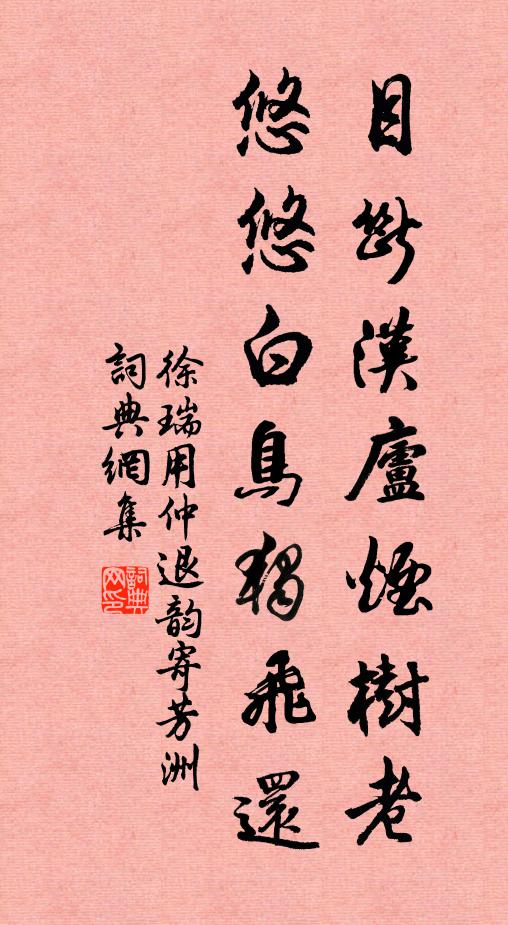 目斷漢廬煙樹老
悠悠白鳥獨飛還
徐瑞用仲退韵寄芳洲
詞典網集
詞典网印